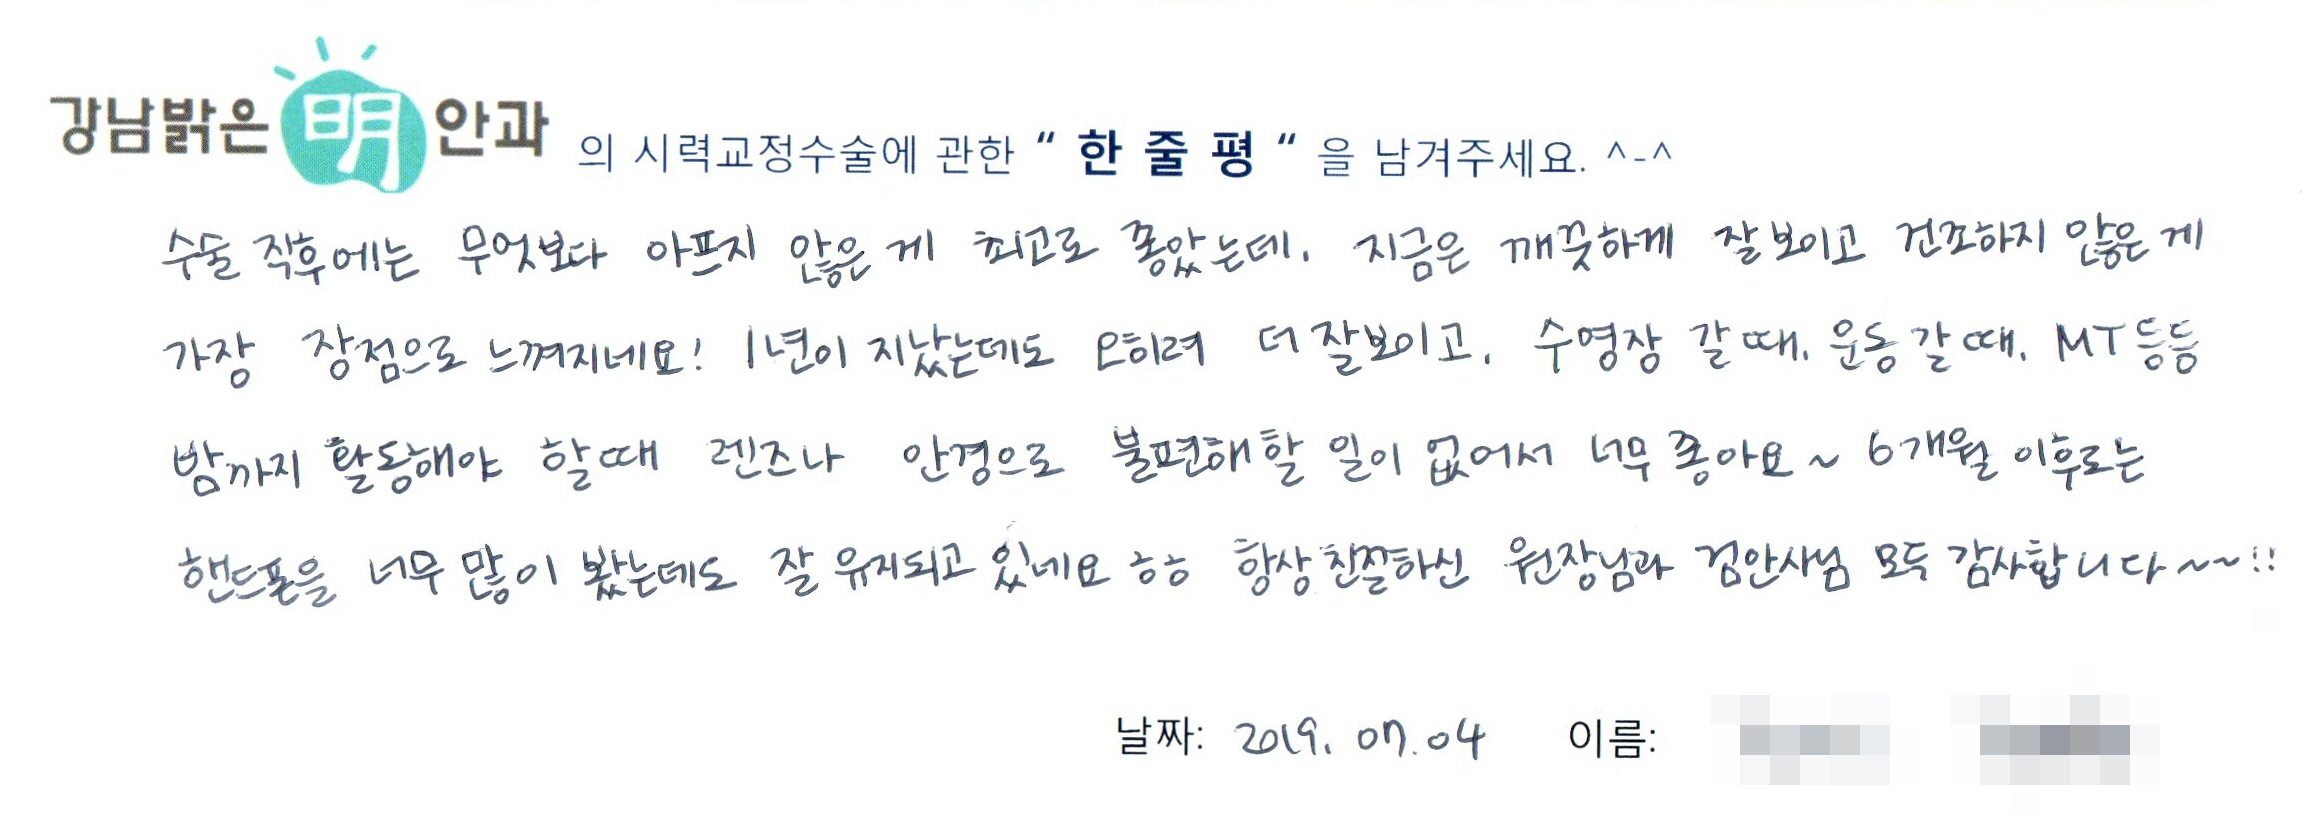 강남밝은 明 안과 의 시력교정수술에 관한 " 한 줄 평 " 을 남겨주세요. ^-^
수술 직후에는 무엇보다 아프지 않은 게 최고로 좋았는데, 지금은 깨끗하게 잘보이고 건조하지 않은 게
가장 장점으로 느껴지네요! 1년이 지났는데도 오히려 더 잘보이고, 수영장 갈 때, 운동 갈 때, MT 등등
밤까지 활동해야 할때 렌즈나 안경으로 불편해할 일이 없어서 너무 좋아요~ 6개월 이후로는
핸드폰을 너무 많이 봤는데도 잘 유지되고 있네요 ㅎㅎ 항상 친절하신 원장님과 검안사님 모두 감사합니다~~!!
날짜: 2019. 07. 04 이름: